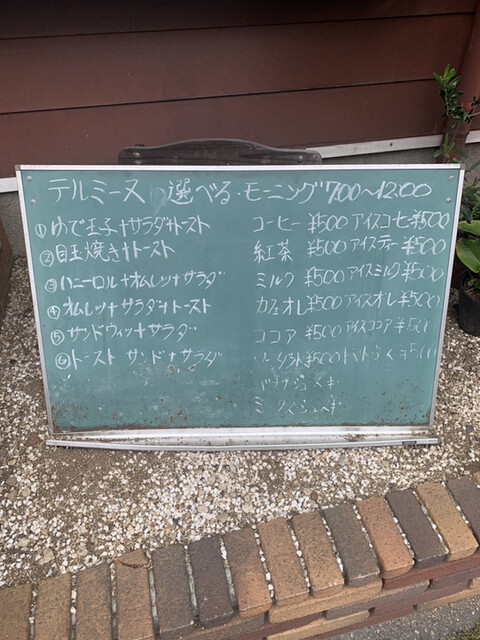 テルミーヌ 選べる・モーニング 7:00〜12:00
①ゆで玉子+サラダ+トースト コーヒー ¥500 アイスコーヒ ¥500
②目玉焼き+トースト 紅茶 ¥500 アイスティー ¥500
③ハニーロール+オムレツ+サラダ ミルク ¥500 アイスミルク ¥500
④オムレツ+サラダ+トースト カフェオレ ¥500 アイスオレ ¥500
⑤サンドウィッ+サラダ ココア ¥500 アイスココア ¥500
⑥トースト サンド+サラダ ¥500 ¥500